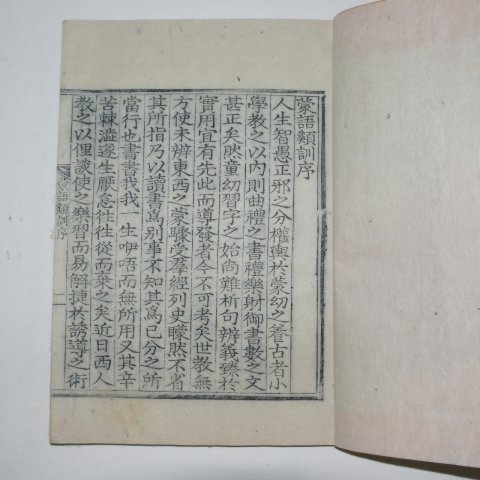 蒙語類訓序
人生智愚正邪之分權輿於蒙幼之養古者小
學教之以內則曲禮之書禮樂射御書數之文
甚正矣然童幼習字之始尚難析句辨義臻於
實用宜有先此而導發者今不可考矣世教無
方使未辨東西之蒙驟受羣經列史矇然不省
其所指乃以讀書爲別事不知其爲已分之所
當行也書書我我一生咿唔而無所用又其辛
苦棘澁遂生厭怠徃徃從而棄之矣近日西人
教之以俚談使之樂習而易解捷於誘導之術
蒙語類訓序
一